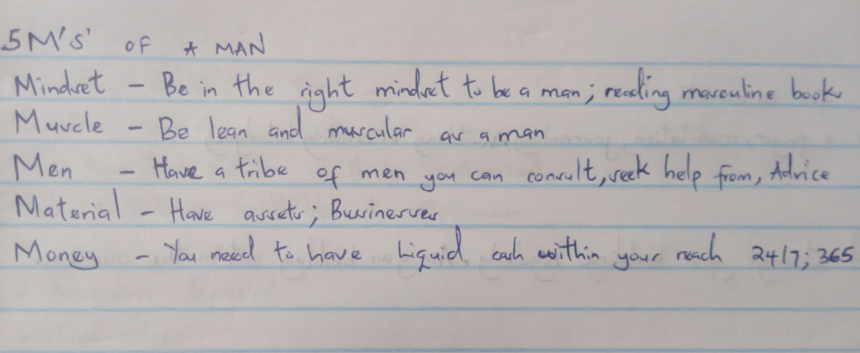 5 M's' OF A MAN
Mindset - Be in the right mindset to be a man; reading masculine books
Muscle - Be lean and muscular as a man
Men - Have a tribe of men you can consult, seek help from, Advice
Material - Have assets; Businesses
Money - You need to have liquid cash within your reach 24/7; 365